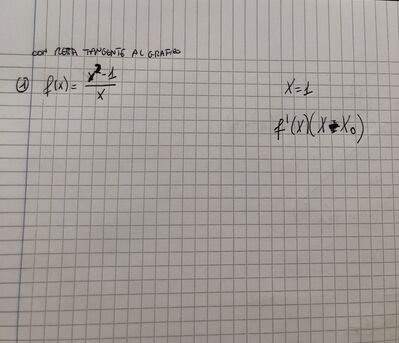 CON RETTA TANGENTE AL GRAFICO
① f(x) = x²-1 / x
X=1
f'(x)(X-X₀)